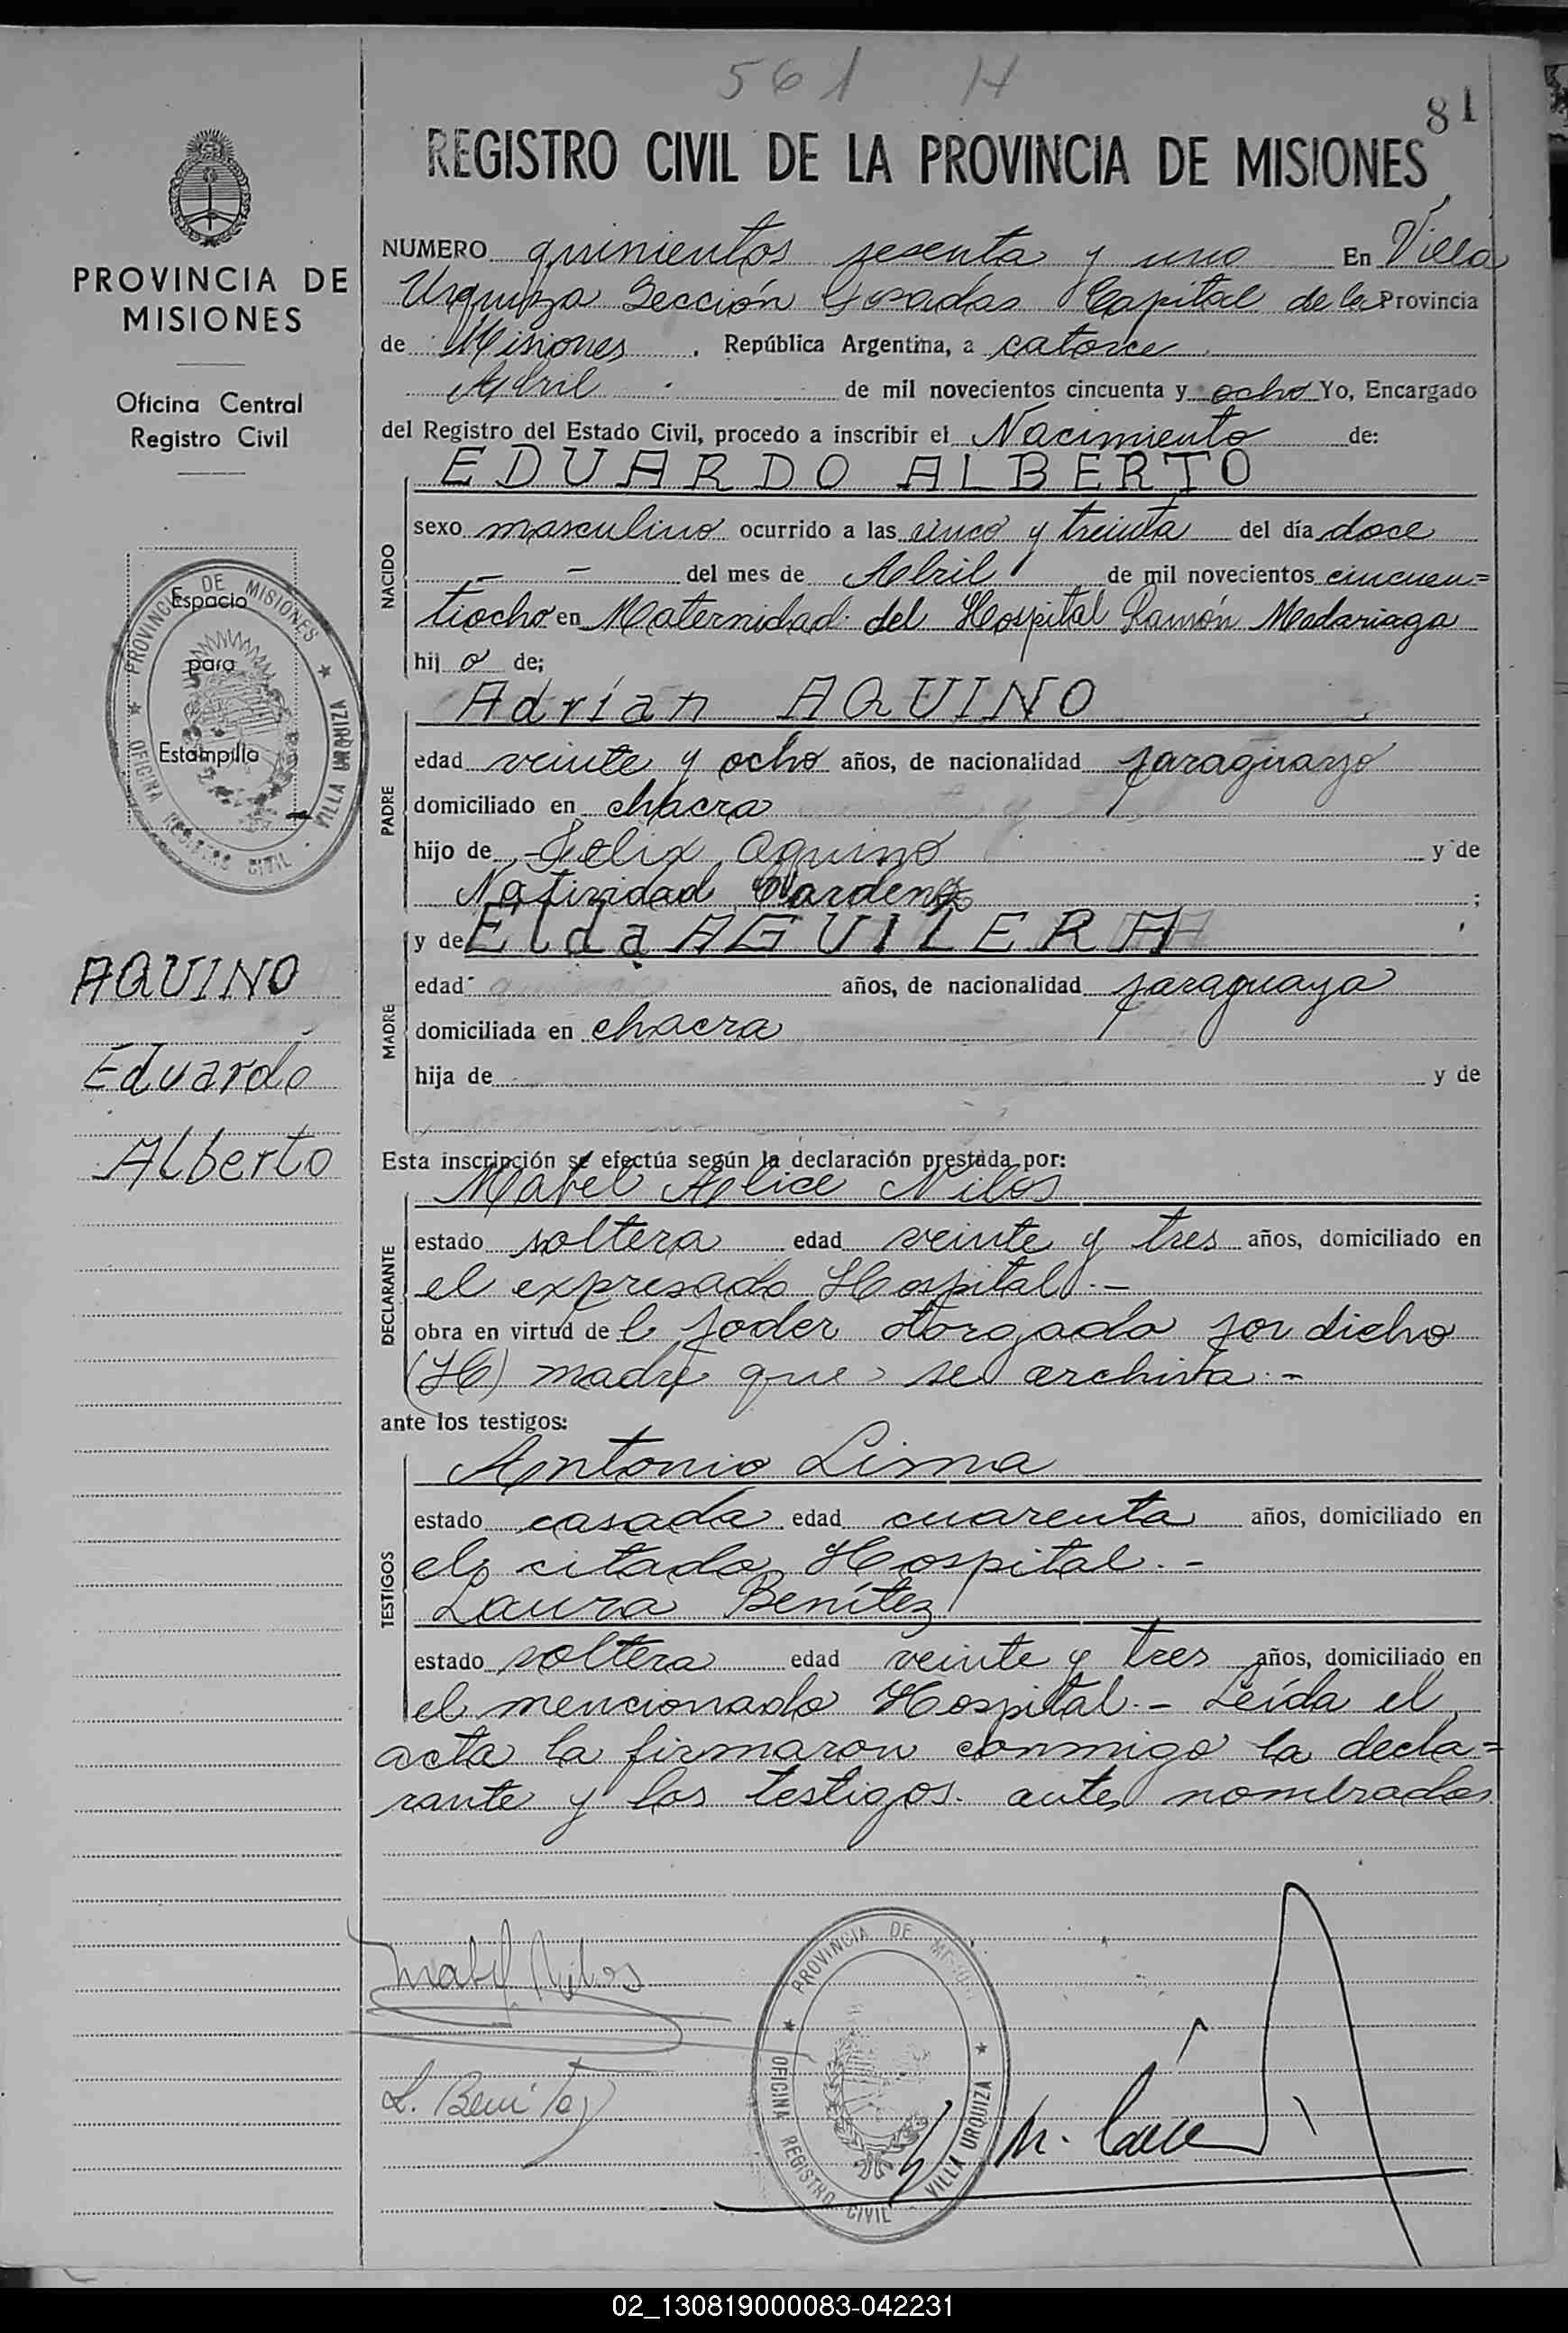 561 H
81
REGISTRO CIVIL DE LA PROVINCIA DE MISIONES
PROVINCIA DE
MISIONES
Oficina Central
Registro Civil
PROVINCIA DE MISIONES
Espacio
para
Estampilla
OFICINA REGISTRO CIVIL - VILLA URQUIZA
AQUINO
Eduardo
Alberto
NUMERO quinientos sesenta y uno En Villa
Urquiza Sección Posadas Capital de la Provincia
de Misiones. República Argentina, a catorce
Abril de mil novecientos cincuenta y ocho Yo, Encargado
del Registro del Estado Civil, procedo a inscribir el Nacimiento de:
NACIDO
EDUARDO ALBERTO
sexo masculino ocurrido a las cinco y treinta del día doce
- - del mes de Abril de mil novecientos cincuen=
tiocho en Maternidad del Hospital Ramón Madariaga
hijo de;
PADRE
Adrián AQUINO
edad veinte y ocho años, de nacionalidad paraguayo
domiciliado en chacra
hijo de Felix Aquino y de
Natividad ;
MADRE
y de Elda AGUILERA
edad años, de nacionalidad paraguaya
domiciliada en chacra
hija de y de
Esta inscripción se efectúa según la declaración prestada por:
DECLARANTE
Mabel Alice Nilos
estado soltera edad veinte y tres años, domiciliado en
el expresado Hospital.-
obra en virtud del poder otorgado por dicho
(H) madre que se archiva.-
ante los testigos:
TESTIGOS
Antonio Lima
estado casada edad cuarenta años, domiciliado en
el citado Hospital.-
Laura Benítez
estado soltera edad veinte y tres años, domiciliado en
el mencionado Hospital.- Leída el
acta la firmaron conmigo la decla=
rante y los testigos antes nombrados
Mabel Nilos
L. Benitez
PROVINCIA DE MISIONES
OFICINA REGISTRO CIVIL - VILLA URQUIZA
02_130819000083-042231